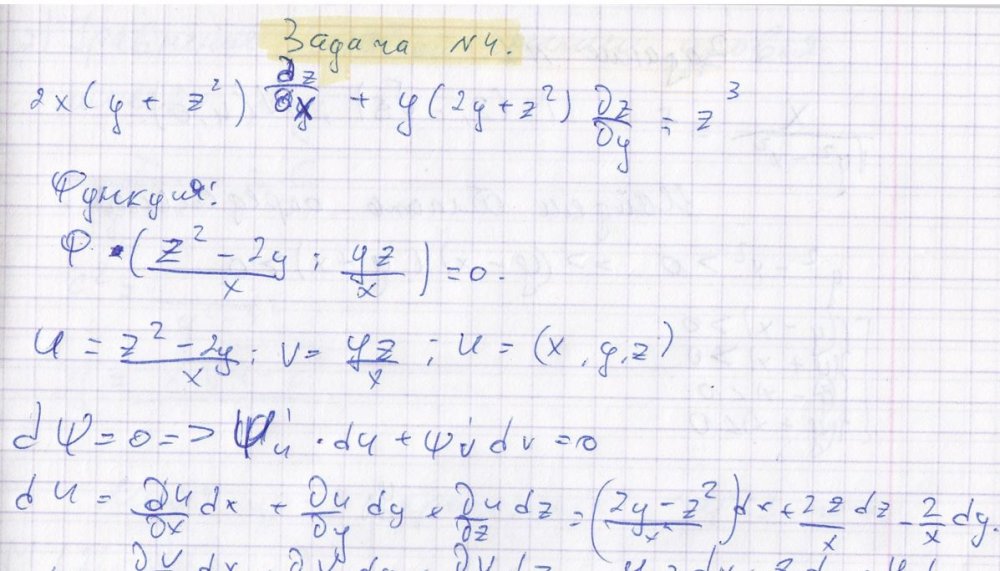 Задача №4.
2x(y + z²) ∂z/∂x + y(2y+z²) ∂z/∂y = z³
Функция:
Ф (z² - 2y / x ; yz / x) = 0.
u = z² - 2y / x ; v = yz / x ; u = (x, y, z)
dΨ = 0 => Ψ'u · du + Ψ'v dv = 0
du = ∂u/∂x dx + ∂u/∂y dy + ∂u/∂z dz = (2y - z² / x²) dx + 2z/x dz - 2/x dy.